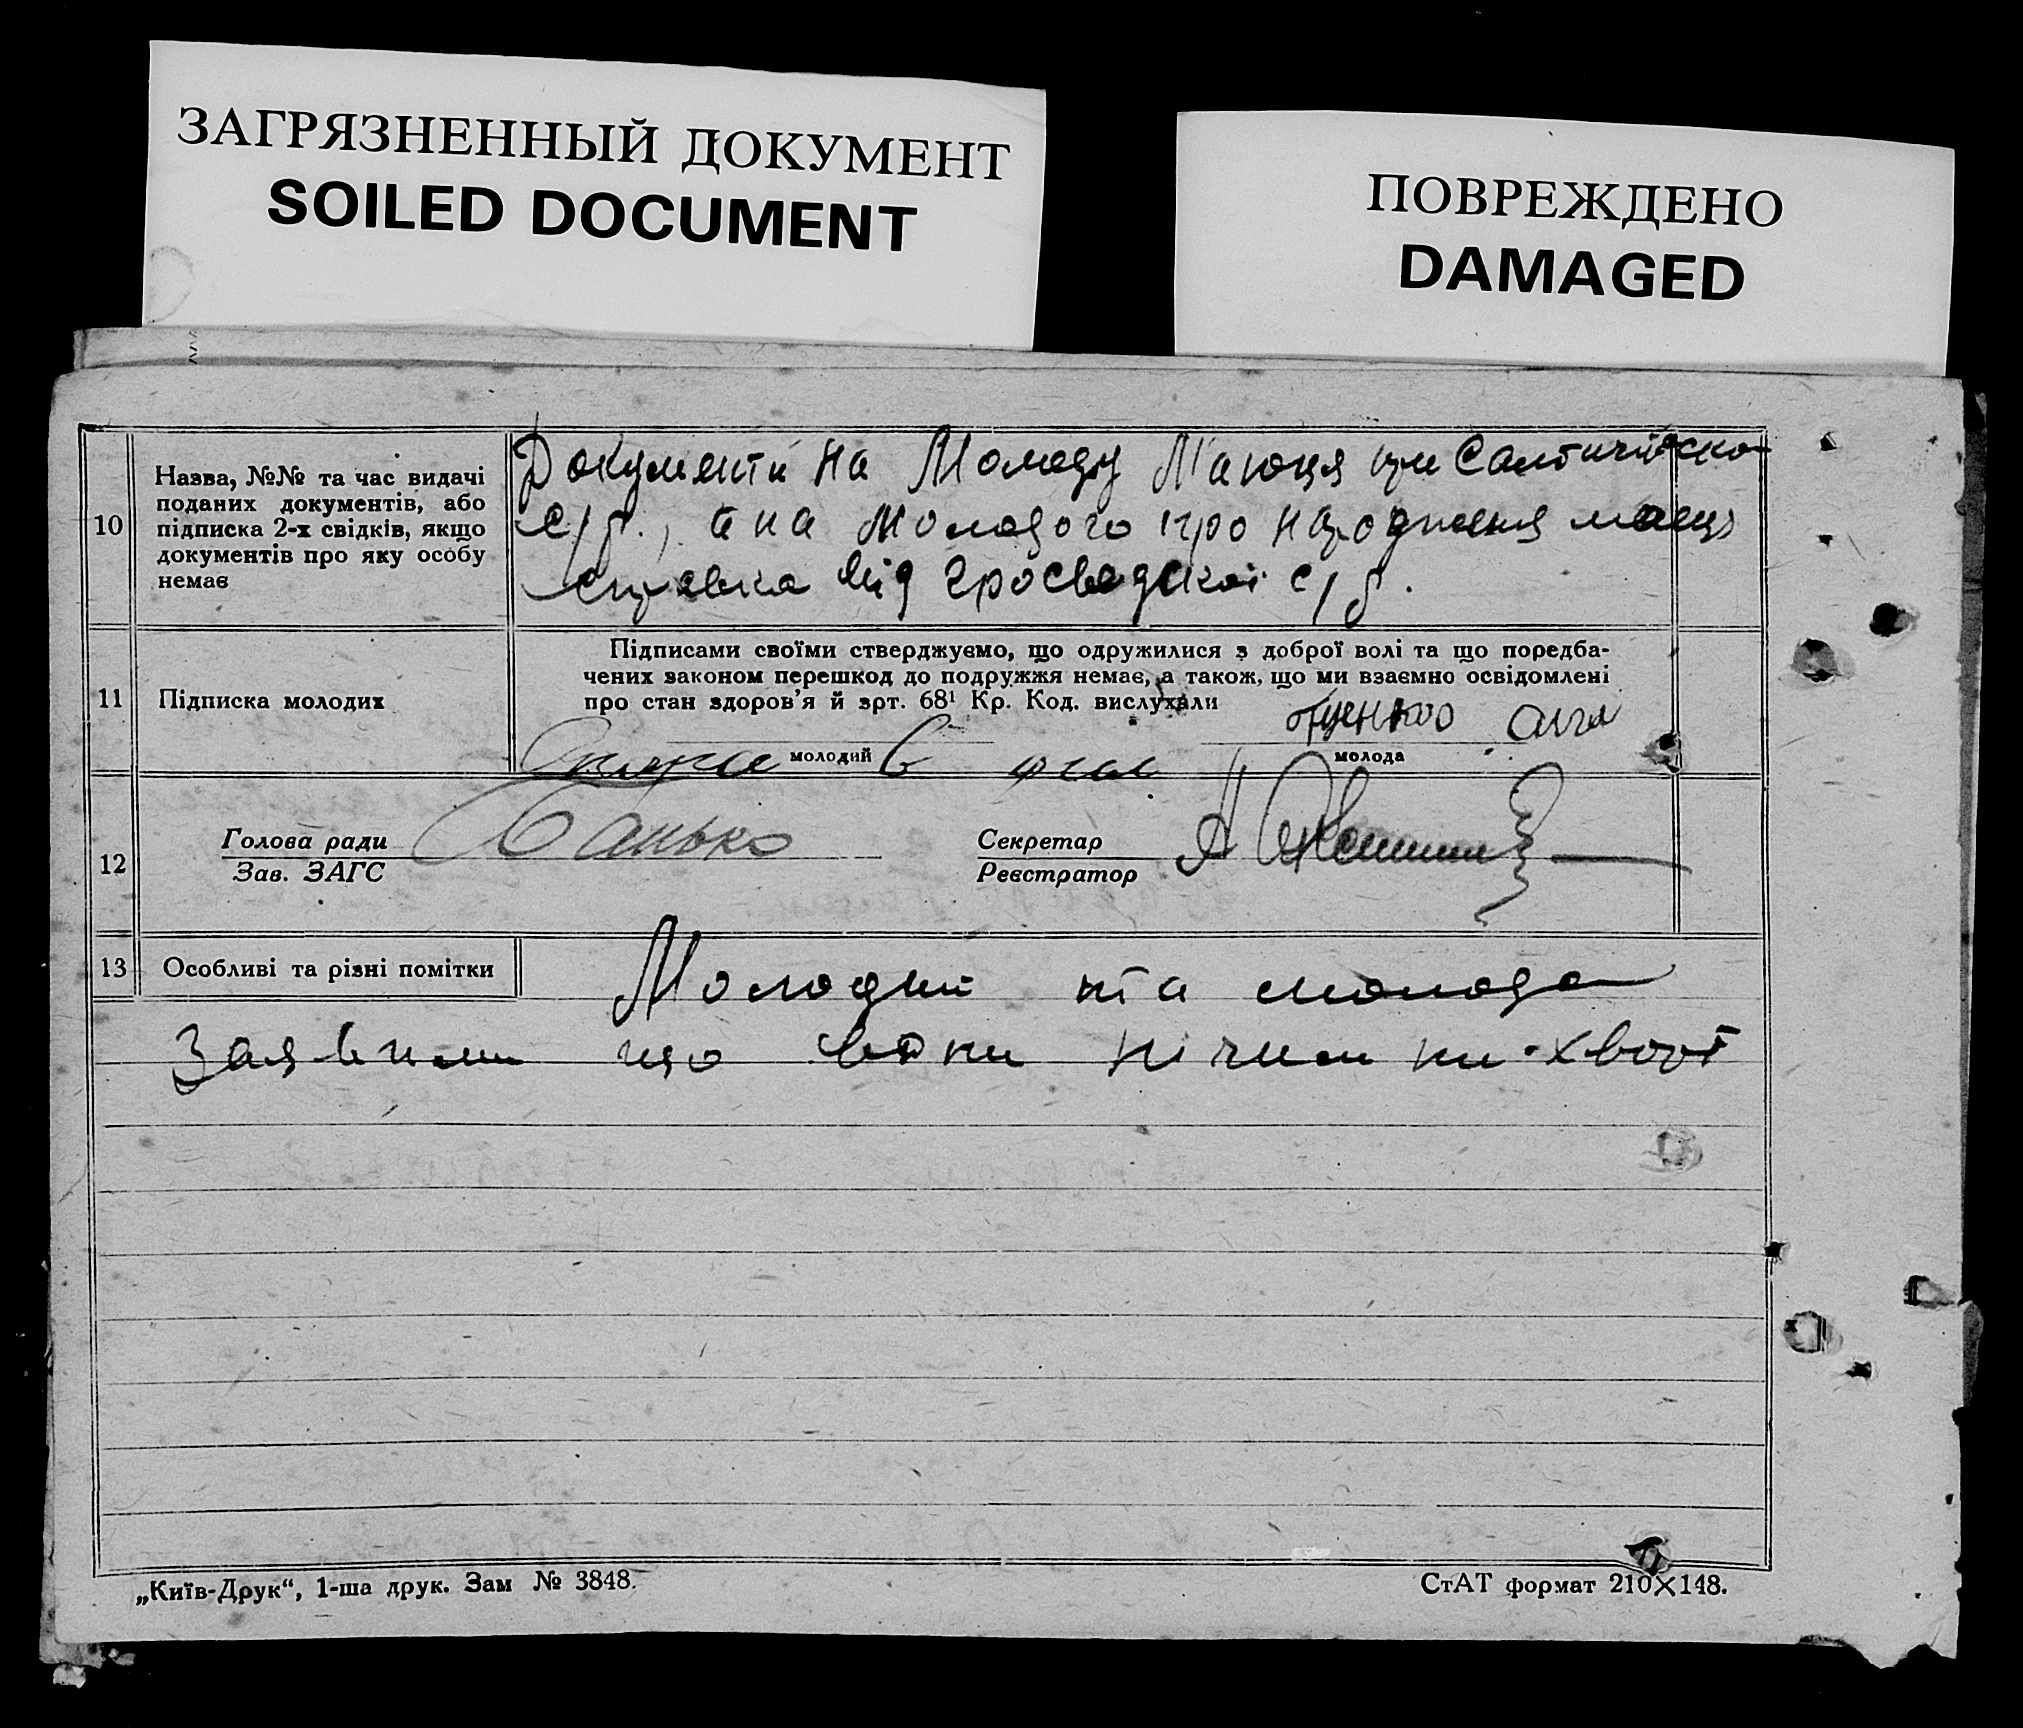 ЗАГРЯЗНЕННЫЙ ДОКУМЕНТ
SOILED DOCUMENT
ПОВРЕЖДЕНО
DAMAGED
10
Назва, №№ та час видачі
поданих документів, або
підписка 2-х свідків, якщо
документів про яку особу
немає
Документи на Молоду Маюця при
с/р., а на Молодого про народження маєця
справка від с/р.
11
Підписка молодих
Підписами своїми стверджуємо, що одружилися з доброї волі та що поредба-
чених законом перешкод до подружжя немає, а також, що ми взаємно освідомлені
про стан здоров'я й зрт. 68¹ Кр. Код. вислухали
молодий
молода
12
Голова ради
Зав. ЗАГС
Банько
Секретар
Реєстратор
13
Особливі та різні помітки
Молодий та молода
Заявили що вони нічим ни хворі
„Київ-Друк“, 1-ша друк. Зам № 3848.
СтАТ формат 210X148.